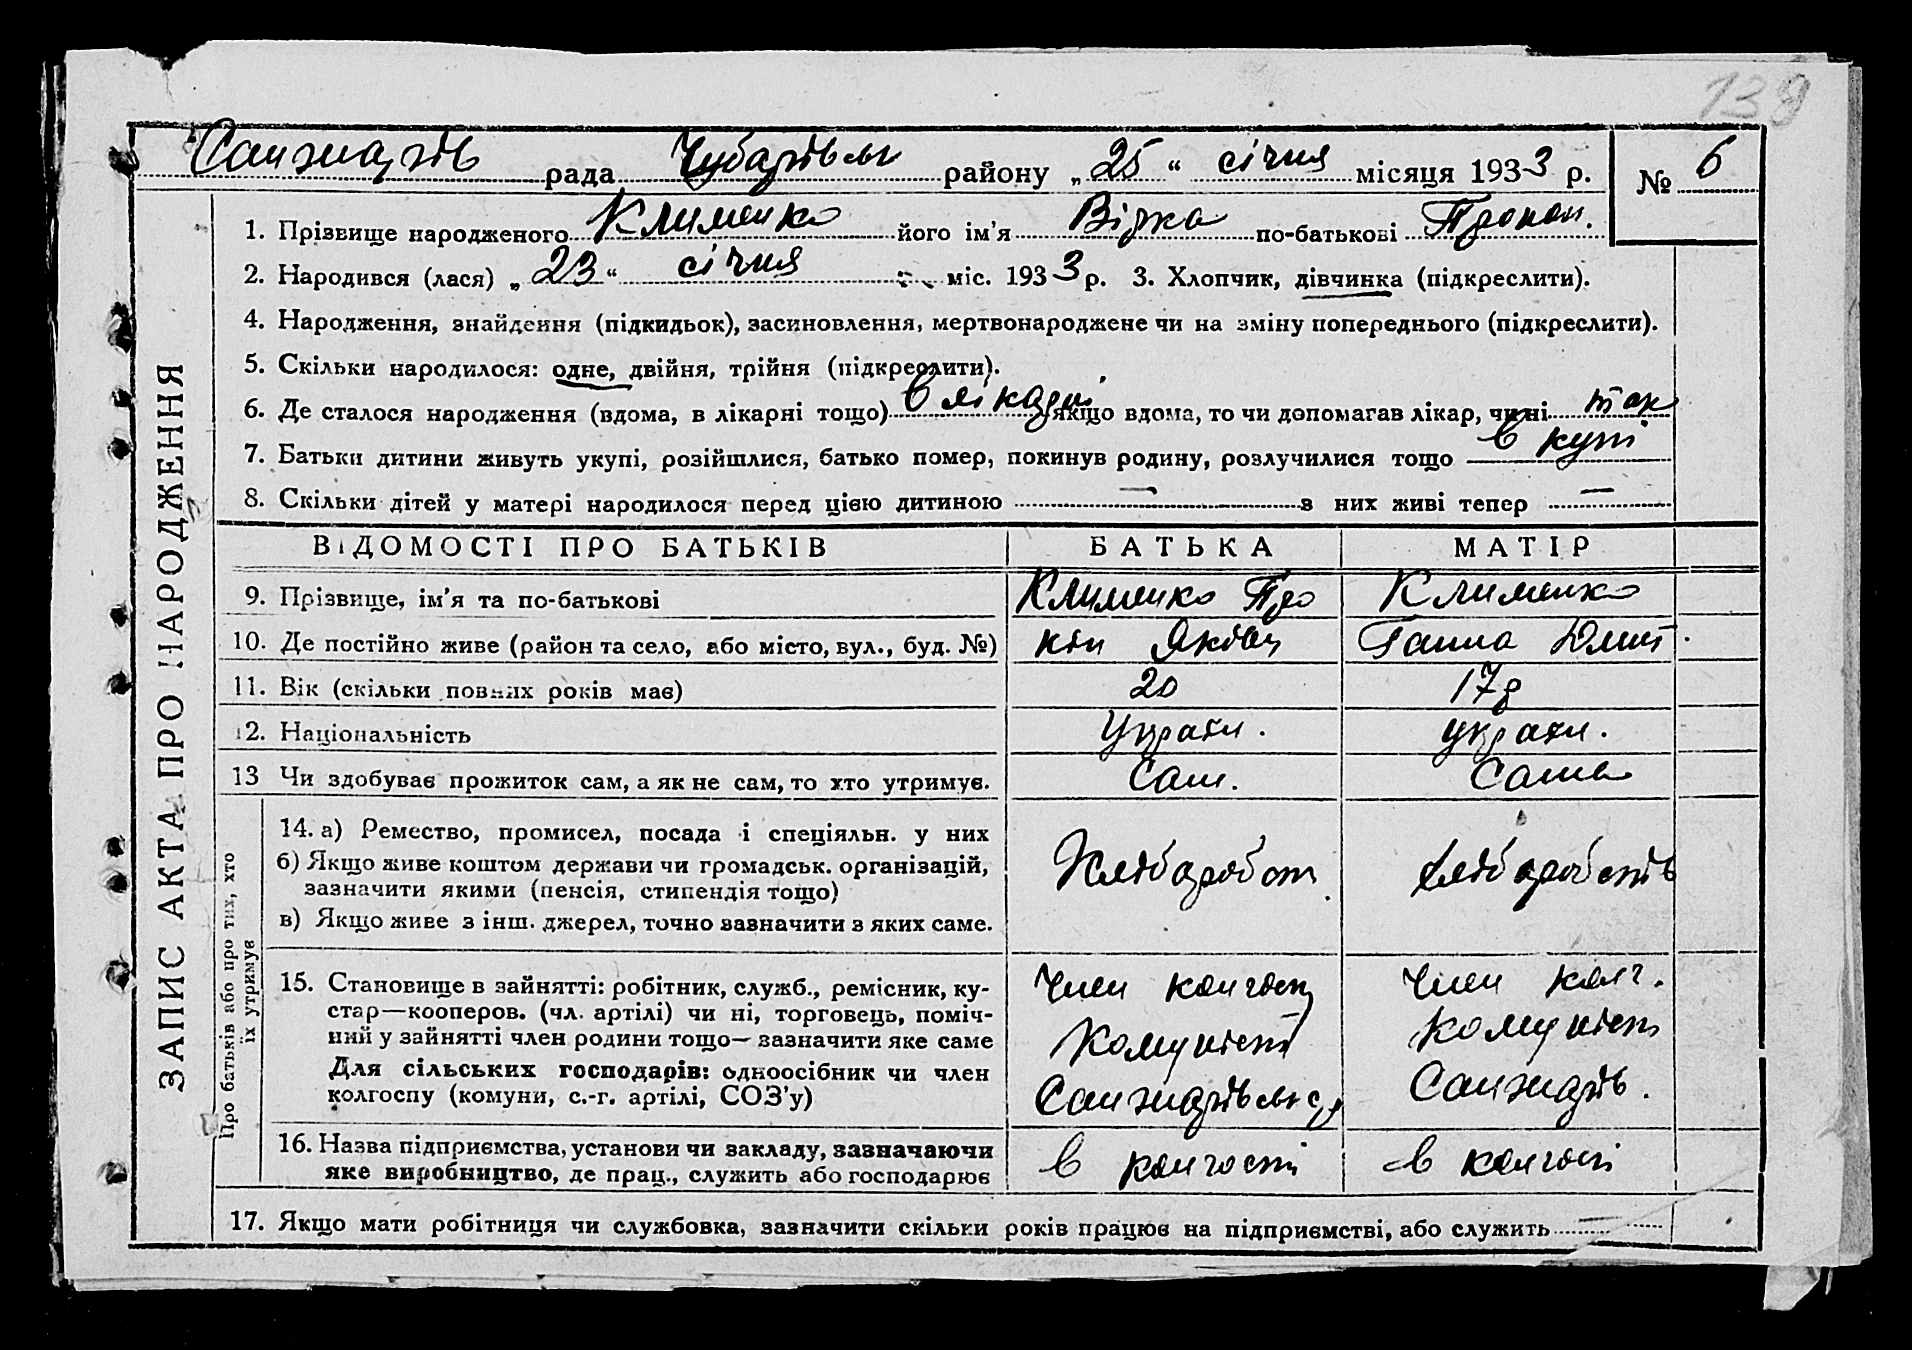 139
Санжарів рада Чубарівськ район​у „25“ січня місяця 1933 р. № 6
1. Прізвище народженого Клименко його ім'я Вірка по-батькові Прокоп.
2. Народився (лася) „23“ січня міс. 1933 р. 3. Хлопчик, дівчинка (підкреслити).
4. Народження, знайдення (підкидьок), засиновлення, мертвонароджене чи на зміну попереднього (підкреслити).
5. Скільки народилося: одне, двійня, трійня (підкреслити).
6. Де сталося народження (вдома, в лікарні тощо) в лікарні якщо вдома, то чи допомагав лікар, чи ні так
7. Батьки дитини живуть укупі, розійшлися, батько помер, покинув родину, розлучилися тощо в купі
8. Скільки дітей у матері народилося перед цією дитиною — з них живі тепер —
ВІДОМОСТІ ПРО БАТЬКІВ БАТЬКА МАТІР
9. Прізвище, ім'я та по-батькові Клименко Про Клименко
10. Де постійно живе (район та село, або місто, вул., буд. №) кіп Яківц Ганна
11. Вік (скільки повних років має) 20 17р
12. Національність Україн. україн.
13 Чи здобуває прожиток сам, а як не сам, то хто утримує. Сам. Сама
14. а) Ремество, промисел, посада і спеціяльн. у них
б) Якщо живе коштом держави чи громадськ. організацій,
зазначити якими (пенсія, стипендія тощо) Хлібороб
в) Якщо живе з інш. джерел, точно зазначити з яких саме.
15. Становище в зайнятті: робітник, служб., ремісник, ку-
стар—кооперов. (чл. артілі) чи ні, торговець, поміч-
ний у зайнятті член родини тощо— зазначити яке саме
Для сільських господарів: одноосібник чи член
колгоспу (комуни, с.-г. артілі, СОЗ'у)
Член колгосп Член колг.
Комуніст комуніст
Санжарівськ Санжарів.
16. Назва підприємства, установи чи закладу, зазначаючи
яке виробництво, де прац., служить або господарює
в колгоспі в колгоспі
17. Якщо мати робітниця чи службовка, зазначити скільки років працює на підприємстві, або служить
ЗАПИС АКТА ПРО НАРОДЖЕННЯ
Про батьків або про тих, хто
їх утримує